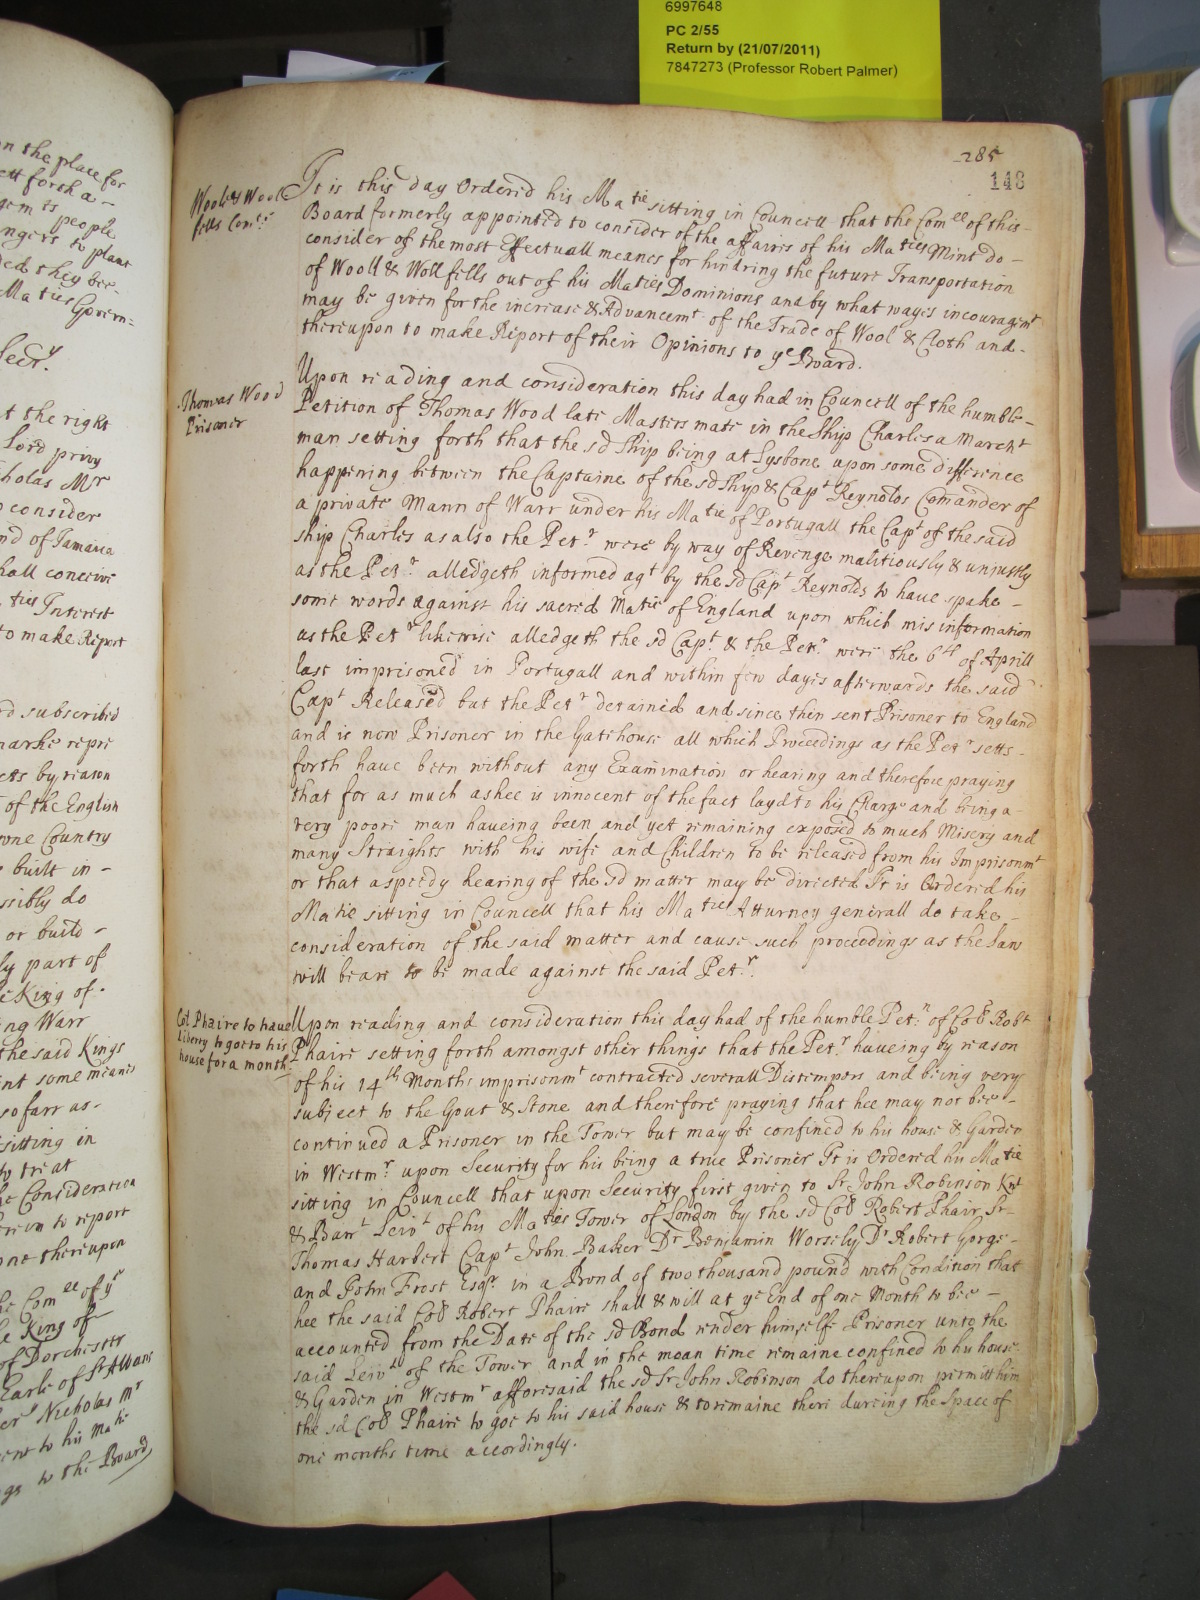 6997648
PC 2/55
Return by (21/07/2011)
7847273 (Professor Robert Palmer)
on the place for
ett forth a -
people
ngers to plant
ded they bee-
Maties Govern=
Secry.
at the right
Lord privy
holas Mr
consider
nd of Jamaica
hall conceive
ties Interest
to make Report
rd subscribed
marke repre
cts by reason
of the English
owne Country
built in -
ssibly do
or build -
ly part of
e King of.
ng Warr
the said Kings
nt some meanes
so farr as-
sitting in
to treat
he Consideration
to report
one thereupon
he Comee of ye
e King of
of Dorchester
Earle of St Albans
Nicholas Mr
to his Matie
gs to the Board
285
148
Wooll & Wooll
fells Con:
It is this day Ordered his Matie sitting in Councell that the Comee of this-
Board formerly appointed to consider of the affaires of his Maties Mint do -
consider of the most Effectuall meanes for hindring the future Transportation
of Wooll & Wollfells out of his Maties Dominions and by what wayes incouragemt
may be given for the increase & Advancemt of the Trade of Wool & Cloth and-
thereupon to make Report of their Opinions to ye Board.
Thomas Wood
Prisoner
Upon reading and consideration this day had in Councell of the humble-
Petition of Thomas Wood late Masters mate in the Ship Charles a Marcht
man setting forth that the sd Ship being at Lysbone upon some difference
happening between the Captaine of the sd Ship & Capt Reynolds Comander of
a private Mann of Warr under his Matie of Portugall the Capt of the said
ship Charles as also the Petr. were by way of Revenge malitiously & unjustly
as the Petr. alledgeth informed agt by the sd Capt Reynolds to have spake -
some words against his sacred Matie of England upon which mis information
as the Petr likewise alledgeth the sd Capt. & the Petr. were the 6th of Aprill
last imprisoned in Portugall and within few dayes afterwards the said
Capt Released but the Petr detained and since then sent Prisoner to England
and is now Prisoner in the Gatehouse all which Proceedings as the Petr setts-
forth have been without any Examination or hearing and therefore praying
that for as much as hee is innocent of the fact layd to his Charge and being a-
very poore man haveing been and yet remaining exposed to much Misery and
many Straights with his wife and Children to be released from his Imprisonmt
or that a speedy hearing of the sd matter may be directed It is Ordered his
Matie sitting in Councell that his Maties Atturney generall do take -
consideration of the said matter and cause such proceedings as the Law
will beare to be made against the said Petr.
Col Phaire to have
Liberty to goe to his
house for a month
Upon reading and consideration this day had of the humble Petn. of Coll Robt
Phaire setting forth amongst other things that the Petr. haveing by reason
of his 14th Months imprisonmt contracted severall Distempers and being very
subject to the Gout & Stone and therefore praying that hee may not bee -
continued a Prisoner in the Tower but may be confined to his house & Garden
in Westmr. upon Security for his being a true Prisoner It is Ordered his Matie
sitting in Councell that upon Security first given to Sr John Robinson Knt
& Barrt Leivt of his Maties Tower of London by the sd Coll Robert Phair Sr-
Thomas Harbert Capt John Baker Dr Benjamin Worsely Dr Robert Gorge-
and John Frost Esqr. in a Brond of two thousand pound with Condition that
hee the said Coll Robert Phaire shall & will at ye End of one Month to bee -
accounted from the Date of the sd Bond render himself Prisoner unto the
said Leivt of the Tower and in the mean time remaine confined to his house
& Garden in Westmr afforesaid the sd Sr John Robinson do thereupon permitt him
the sd Coll Phaire to goe to his said house & to remaine there dureing the Space of
one months time accordingly.